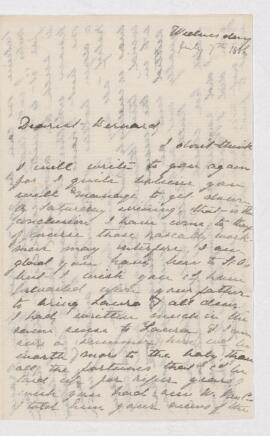 Wednesday
July 7th
Dearest Bernard
I don't think
I will write to you again
for I quite believe you
will manage to get down
on Saturday evening, that is the
conclusion I have come to, tho'
of course those rascally work
men may interfere. I am
glad you have been to
but I wish you'd have
your father
to bring Laura &
I had written much in the
same sense to Laura. I am
sure a summer here will be
worth more to the baby than
all the
for years
wish you had seen
I told him your views of the